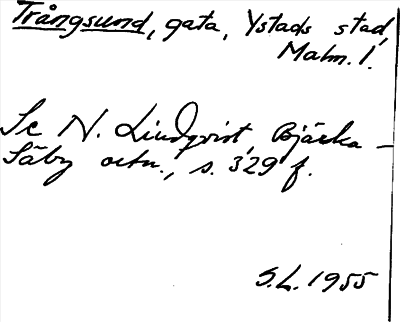 Trångsund, gata, Ystads stad,
Malm. l.
Se N. Lindqvist, Bjärka-
Säby ortn., s. 329 f.
S.L. 1955